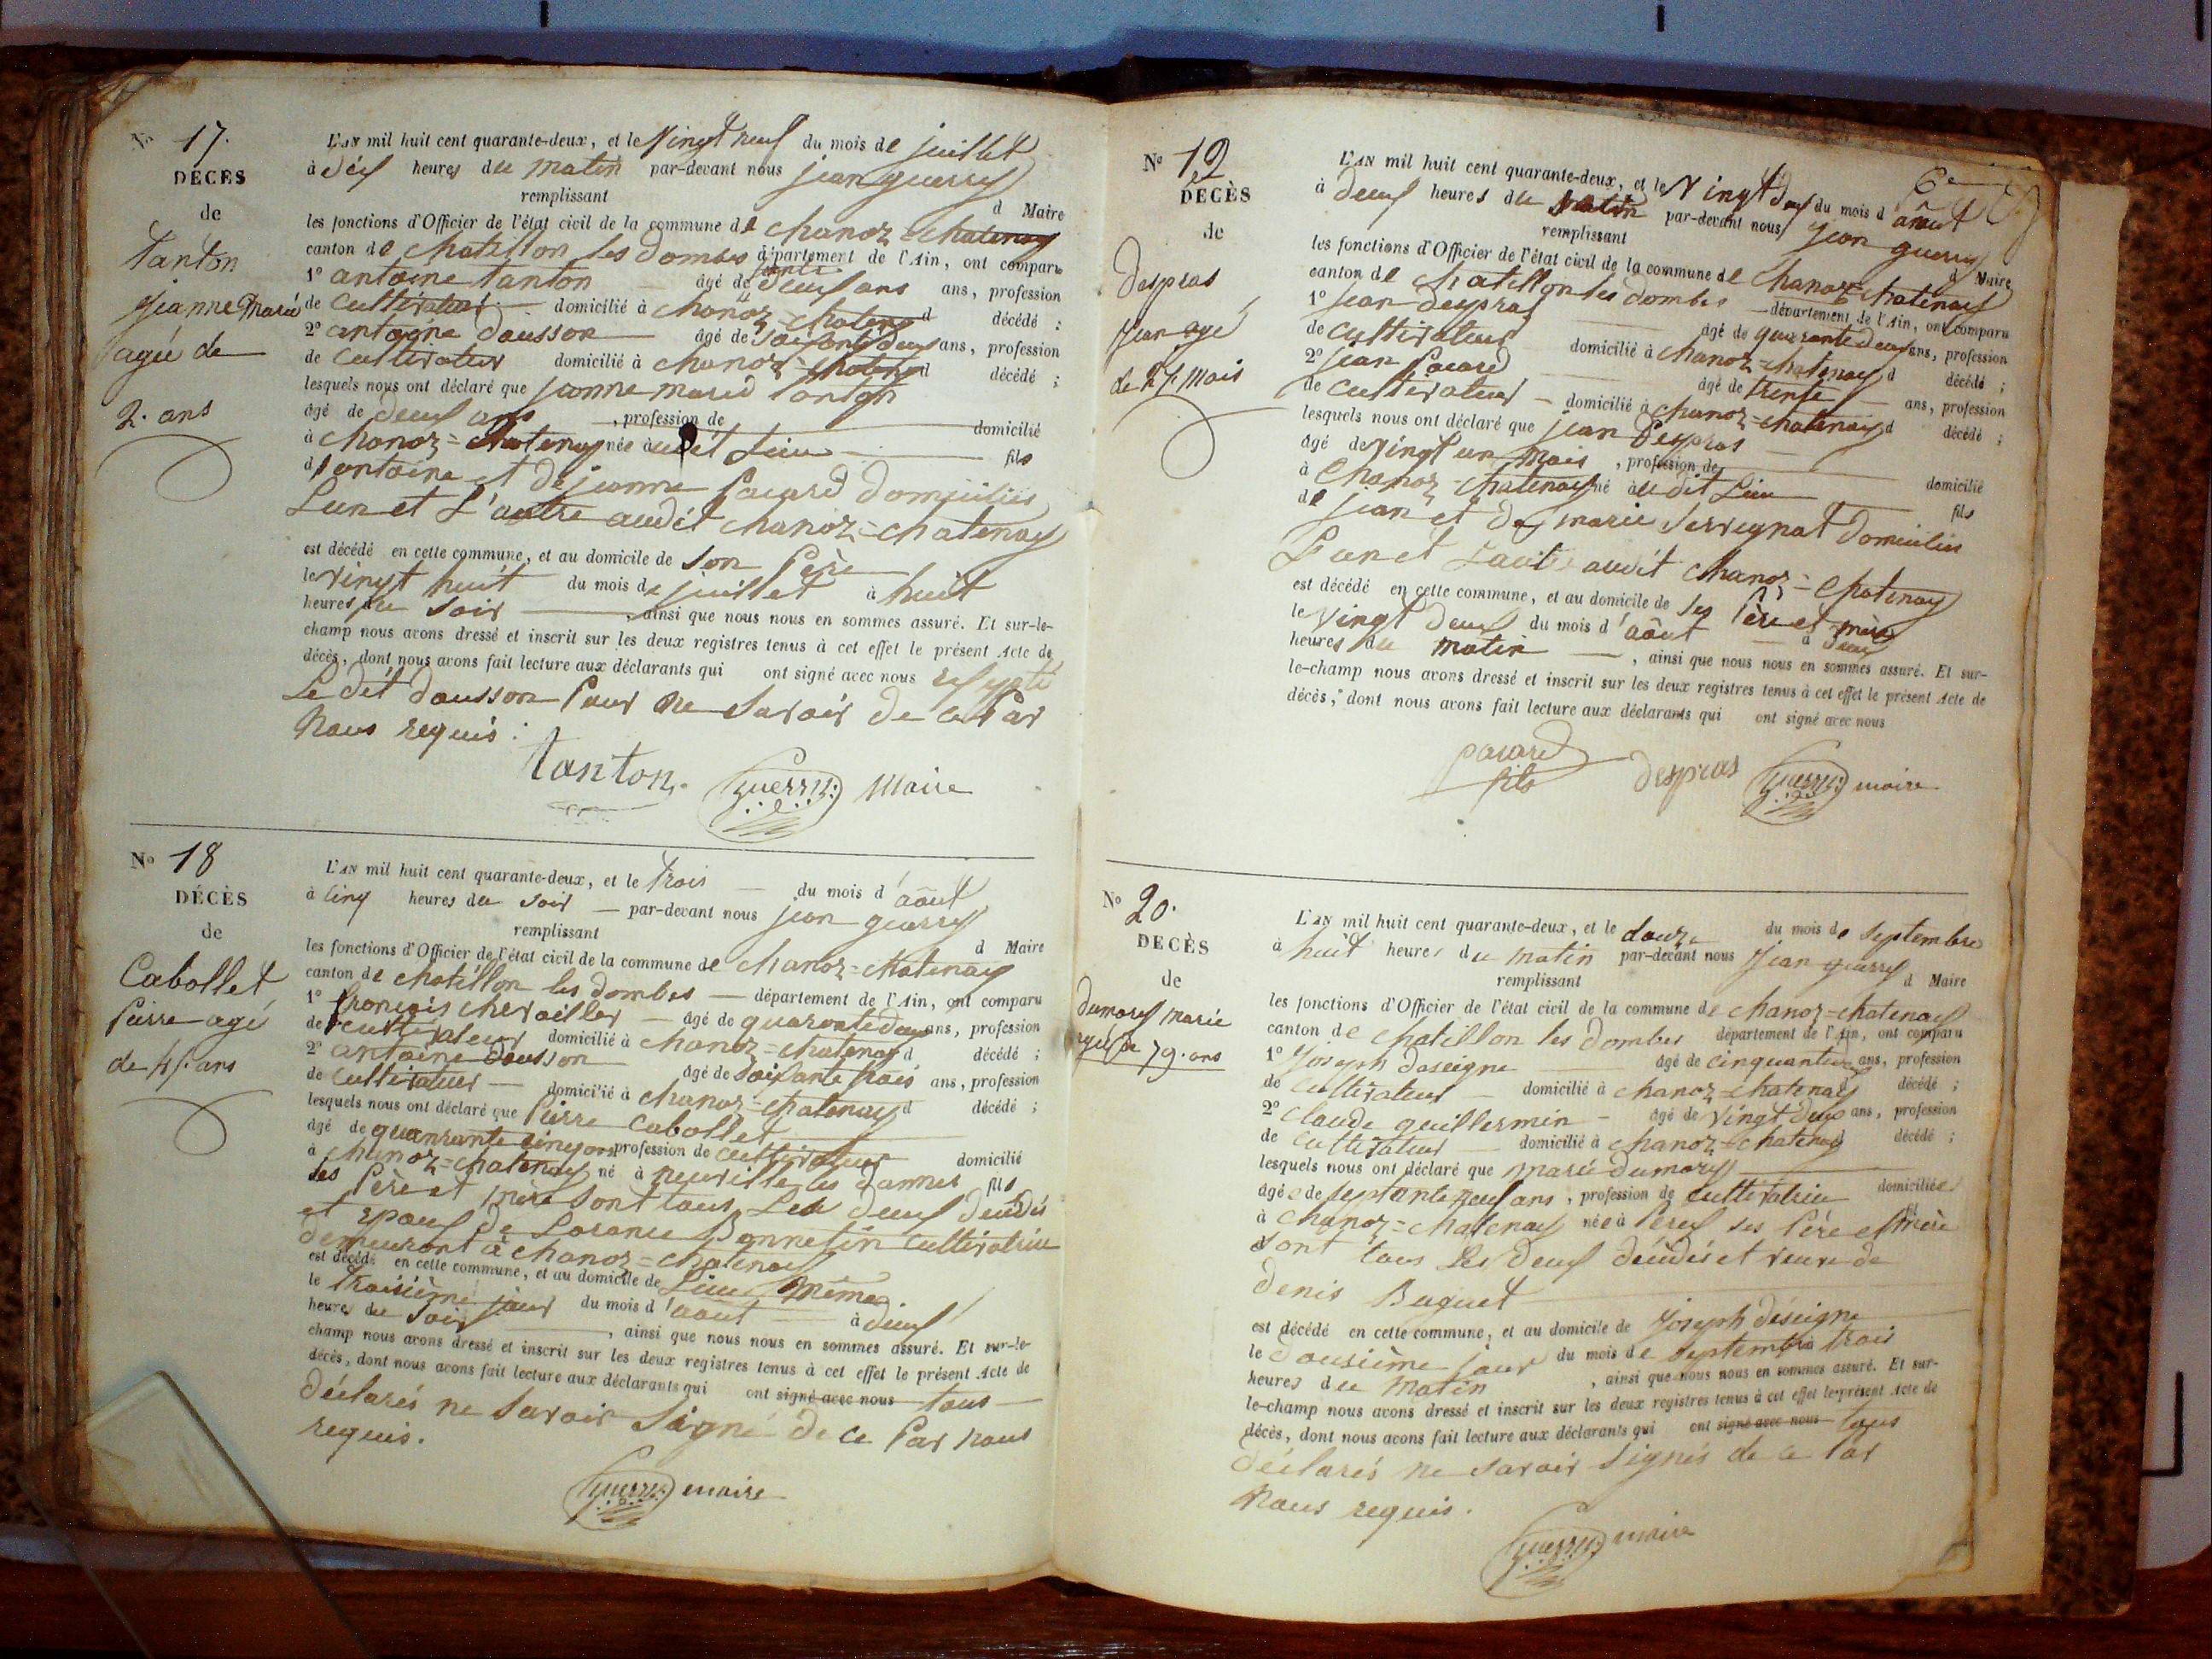 N° 17.
DÉCÈS
de
Tanton
Jeanne Marie
agée de
2. ans
L'AN mil huit cent quarante-deux, et le Vingt neuf du mois de juillet
à dix heures du matin par-devant nous jean guerry
remplissant d Maire
les fonctions d'Officier de l'état civil de la commune de chanoz=chatenay
canton de chatillon les dombes département de l'Ain, ont comparu
1° antoine tanton âgé de trente deux ans ans, profession
de cultivateur domicilié à chanoz=chatenay d décédé ;
2° antoine dousson âgé de soixante deux ans, profession
de cultivateur domicilié à chanoz=chatenay d décédé ;
lesquels nous ont déclaré que jeanne marie tanton
âgé de deux ans , profession de domicilié
à chanoz=chatenay née audit Lieu fils
d'antoine et de jeanne Pacard domiciliés
Lun et L'autre audit chanoz=chatenay
est décédé en cette commune, et au domicile de son Père
le vingt huit du mois de juillet à huit
heures du soir , ainsi que nous nous en sommes assuré. Et sur-le-
champ nous avons dressé et inscrit sur les deux registres tenus à cet effet le présent Acte de
décès, dont nous avons fait lecture aux déclarants qui ont signé avec nous
Le dit dousson Pour ne savoir de ce Par
nous requis.
tanton. Guerry Maire
N° 18
DÉCÈS
de
Cabollet
Pierre agé
de 45 ans
L'AN mil huit cent quarante-deux, et le trois du mois d'août
à cinq heures du soir par-devant nous jean guerry
remplissant d Maire
les fonctions d'Officier de l'état civil de la commune de chanoz=chatenay
canton de chatillon les dombes département de l'Ain, ont comparu
1° françois chevailler âgé de quarante deux ans, profession
de cultivateur domicilié à chanoz=chatenay d décédé ;
2° antoine dousson âgé de soixante trois ans, profession
de cultivateur domicilié à chanoz=chatenay d décédé ;
lesquels nous ont déclaré que Pierre Cabollet
âgé de quanrante cinq ans profession de cultivateur domicilié
à chanoz=chatenay né à neuville les dammes fils
ses Père et mère sont tous Les deux décédés
et epoux de Lorance Bonnetin cultivatrice
demeurant à chanoz=chatenay
est décédé en cette commune, et au domicile de Lui même
le troisième jour du mois d'août à deux
heures du soir , ainsi que nous nous en sommes assuré. Et sur-le-
champ nous avons dressé et inscrit sur les deux registres tenus à cet effet le présent Acte de
décès, dont nous avons fait lecture aux déclarants qui ont signé avec nous tous
déclarés ne savoir signé de ce Par nous
requis.
Guerry maire
6e
N° 19
DÉCÈS
de
despras
jean agé
de 21 Mois
L'AN mil huit cent quarante-deux, et le Vingt deux du mois d'août
à deux heures du matin par-devant nous jean guerry
remplissant d Maire
les fonctions d'Officier de l'état civil de la commune de chanoz=chatenay
canton de chatillon les dombes département de l'Ain, ont comparu
1° jean despras âgé de quarante deux ans, profession
de cultivateur domicilié à chanoz=chatenay d décédé ;
2° jean Pacard âgé de trente ans, profession
de cultivateur domicilié à chanoz=chatenay d décédé ;
lesquels nous ont déclaré que jean despras
âgé de vingt un mois , profession de domicilié
à chanoz=chatenay né audit Lieu fils
de jean et de marie servegnat domiciliés
Lun et Lautre audit chanoz=chatenay
est décédé en cette commune, et au domicile de ses Père et mère
le vingt deux du mois d'août à deux
heures du matin , ainsi que nous nous en sommes assuré. Et sur-
le-champ nous avons dressé et inscrit sur les deux registres tenus à cet effet le présent Acte de
décès, dont nous avons fait lecture aux déclarants qui ont signé avec nous
pacard fils despras Guerry maire
N° 20.
DÉCÈS
de
dumory marie
agée de 79. ans
L'AN mil huit cent quarante-deux, et le douze du mois de septembre
à huit heures du matin par-devant nous jean guerry
remplissant d Maire
les fonctions d'Officier de l'état civil de la commune de chanoz=chatenay
canton de chatillon les dombes département de l'Ain, ont comparu
1° joseph daseigne âgé de cinquante ans, profession
de cultivateur domicilié à chanoz=chatenay décédé ;
2° claude guillermin âgé de vingt deux ans, profession
de cultivateur domicilié à chanoz=chatenay décédé ;
lesquels nous ont déclaré que marie dumory
âgée de septante neuf ans , profession de cultivatrice domiciliée
à chanoz=chatenay née à Perex ses Père et mère
sont tous Les deux décédés et veuve de
denis Buguet
est décédé en cette commune, et au domicile de joseph deseigne
le dousième jour du mois de septembre à trois
heures du matin , ainsi que nous nous en sommes assuré. Et sur-
le-champ nous avons dressé et inscrit sur les deux registres tenus à cet effet le présent Acte de
décès, dont nous avons fait lecture aux déclarants qui ont signé avec nous tous
déclarés ne savoir signés de ce Par
nous requis.
Guerry maire